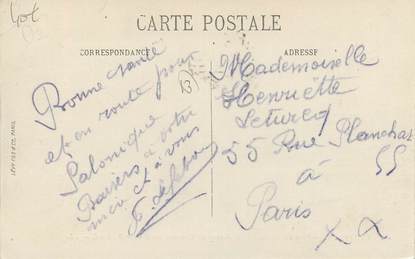 40f
CARTE POSTALE
CORRESPONDANCE
ADRESSE
Bonne santé
et en route pour
Salonique
Baisers à votre
et à vous
Mademoiselle
Henriette
55 Rue Planchat
55
à
Paris
XX
LÉVY FILS & CIE, PARIS